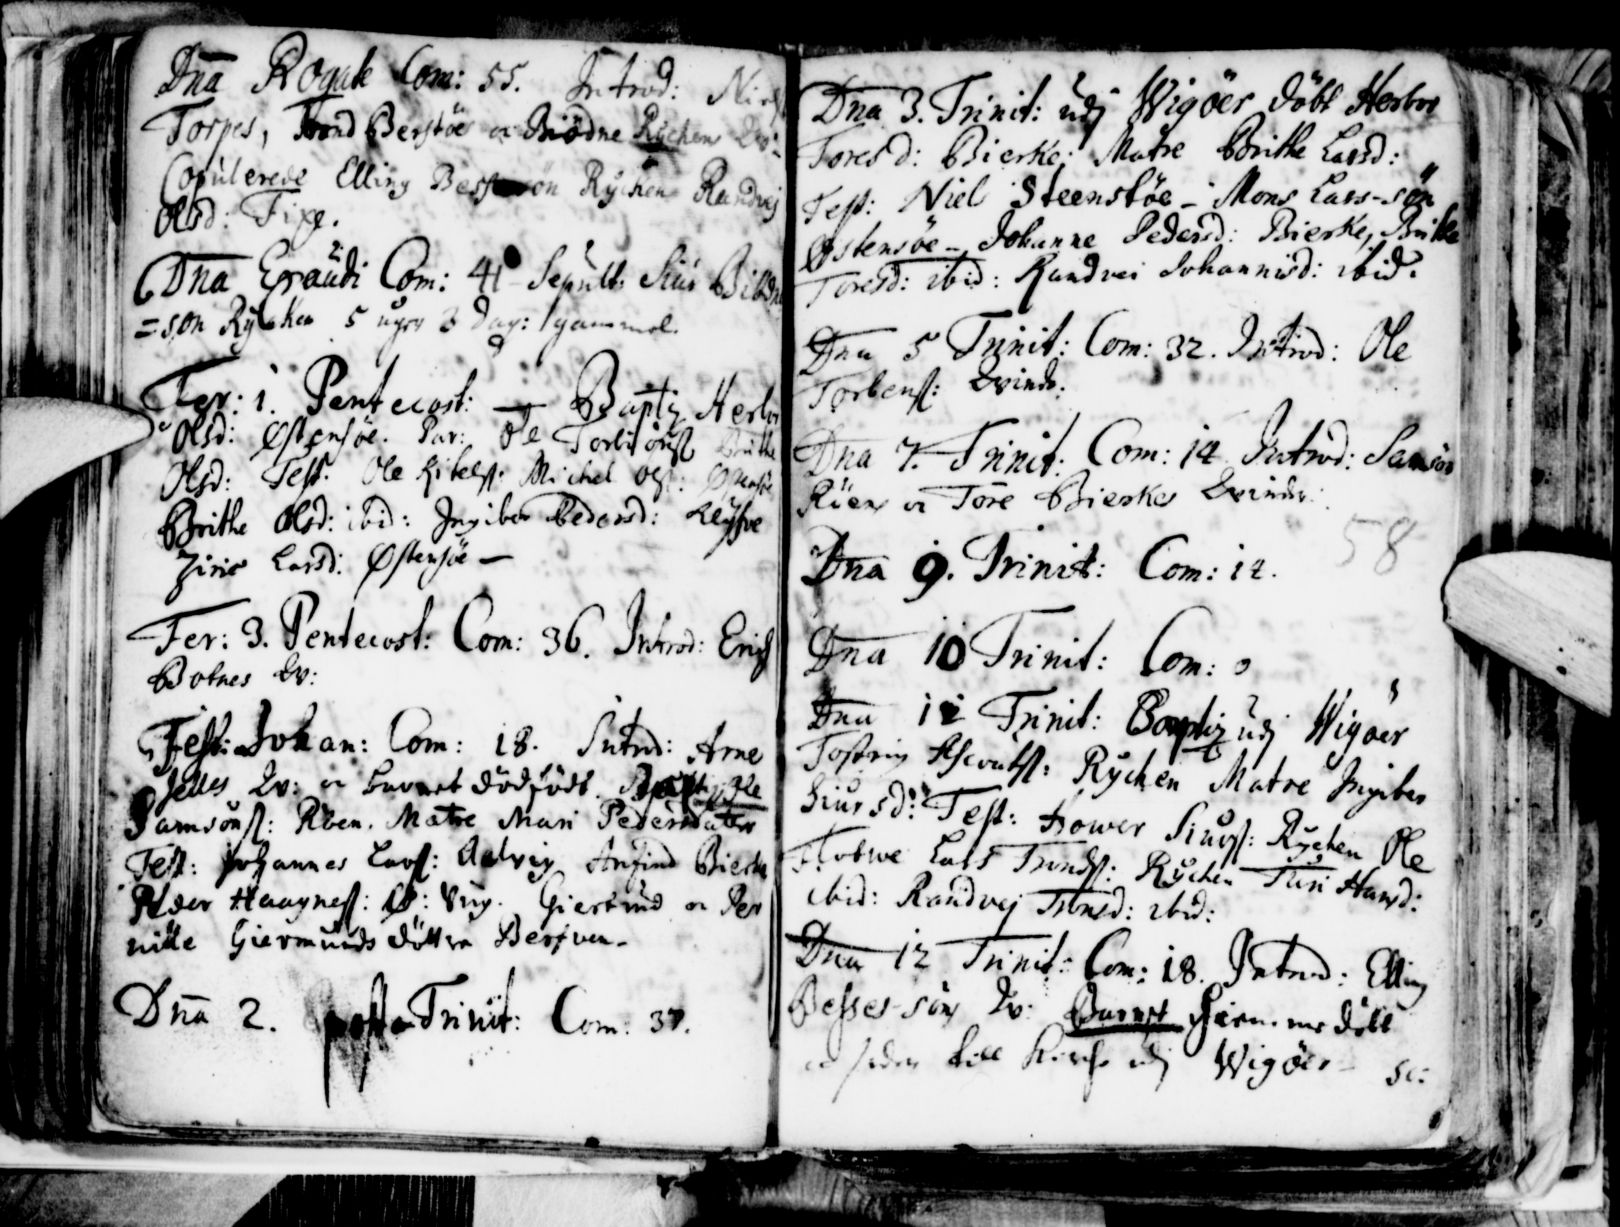 Dnã Rogate Com: 55. Introd: Niels
Torpes, Trond Berstöe oc Biödne Rÿchens Qv:
Copulerede Elling Besse-sön Rÿchen Randvej
Olsd: Fixe.
Dna Exaudi Com: 41 Sepult: Siur
=søn Rÿchen 5 uger 3 dag: gammel.
Fer: 1. Pentecost: — Baptz Herbor
Olsd: Østensöe. Par: Ole Torbiönss: Brithe
Olsd: Test: Ole Michel Ols: Østensöe
Brithe Olsd: ibid: Ingibor Pedersd:
Ziric Larsd: Østensöe —
Fer: 3. Pentecost: Com: 36. Introd: Erich
Botnes Qv:
Fest: Johan: Com: 18. Introd: Arne
Qv: oc barnet dödfödt. Ole
Samsönss: Röen. Matre Mari Pedersdatter
Test: Johannes Larss: Aalvig Anfind Bierke
Peder Haagness: Giertrud oc Per
nille Giermunds döttre Berfven-
Dnã 2. post Trinit: Com: 37.
Dna 3. Trinit: udj Wigöer döbt Herbor
Toresd: Bierke; Matre Brithe Larsd:
Test: Niels Steenstöe - Mons Lars-sön
Østensöe - Johanne Pedersd: Bierke, Brithe
Toresd: ibid: Randvei Johannisd: ibid.
Dna 5 Trinit: Com: 32. Introd: Ole
Torbenss: Qvinde:
Dna 7. Trinit: Com: 14 Introd: Samson
Röens oc Tore Bierkes Qvinder:
58
Dna 9. Trinit: Com: 12.
Dna 10 Trinit: Com: 0
Dna 11 Trinit: Baptiz udj Wigöer
Tostein Rÿchen Matre Ingibor
Siursd: Test: Hower Siurss: Rÿchen Ole
Flotwe Lars Tronds: Rÿchen Turi Hansd:
ibid: Randvej Tronsd: ibid:
Dna 12 Trinit: Com: 18. Introd: Elling
Besses-söns Qv: Barnet hiemme döbt
oc siden till Kirche udj Wigöer - Sc: